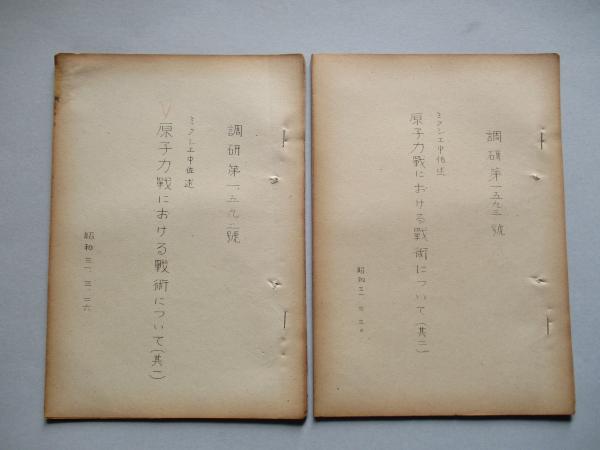 調研第一、五九二號
ミクシエ中佐述
原子力戰における戰術について(其一)
昭和三一、三、二六
調研第一五九三號
ミクシエ中佐述
原子力戰における戰術について(其二)
昭和三一、三、三〇